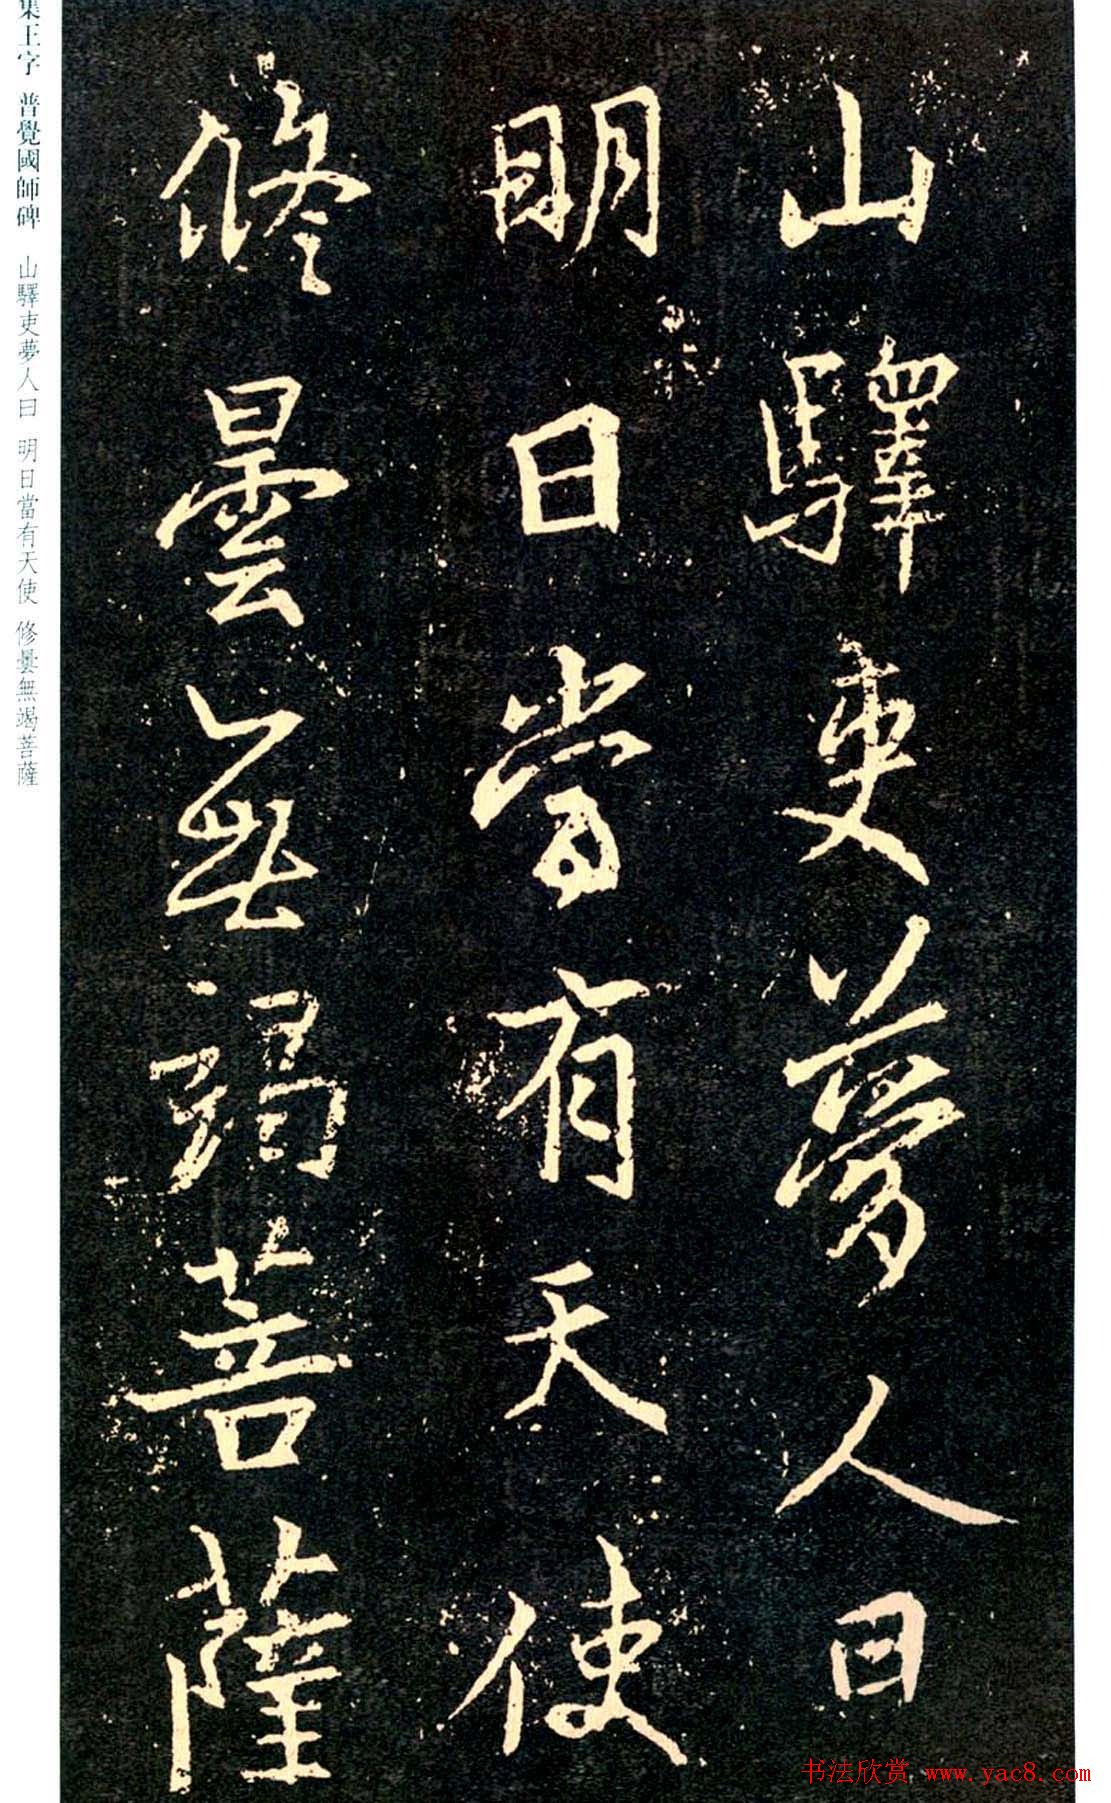 山驛吏夢人曰
明日當有天使
修曇無竭菩薩
集王字 普覺國師碑 山驛吏夢人曰 明日當有天使 修曇無竭菩薩
书法欣赏 www.yac8.com